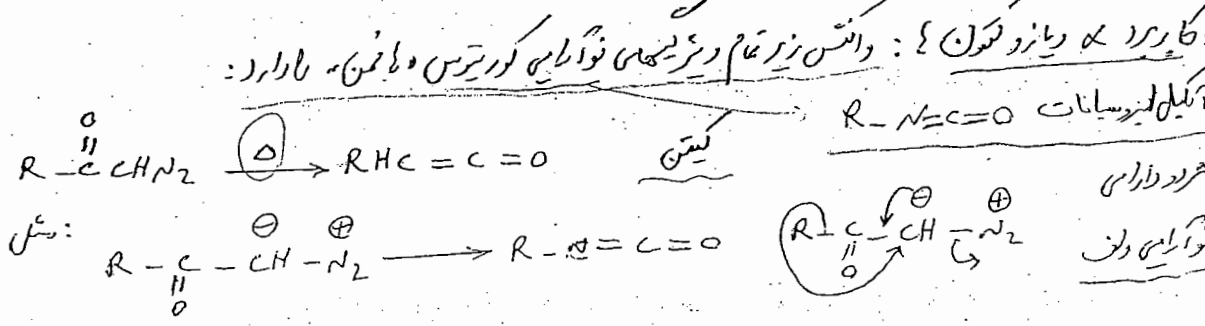 کاربرد α دیازوکتون ها: واکنش زیر تمام ویژگیهای نوآرایی کورتیوس، هافمن، را دارد:
آلکیل ایزوسیانات R-N=C=O
R-C(=O)CHN2 Δ→ RHC=C=O کیتن
نوآرایی ولف
مثل: R-C(=O)-CH⊖-N2⊕ → R-N=C=O R-C(=O)-CH⊖-N2⊕